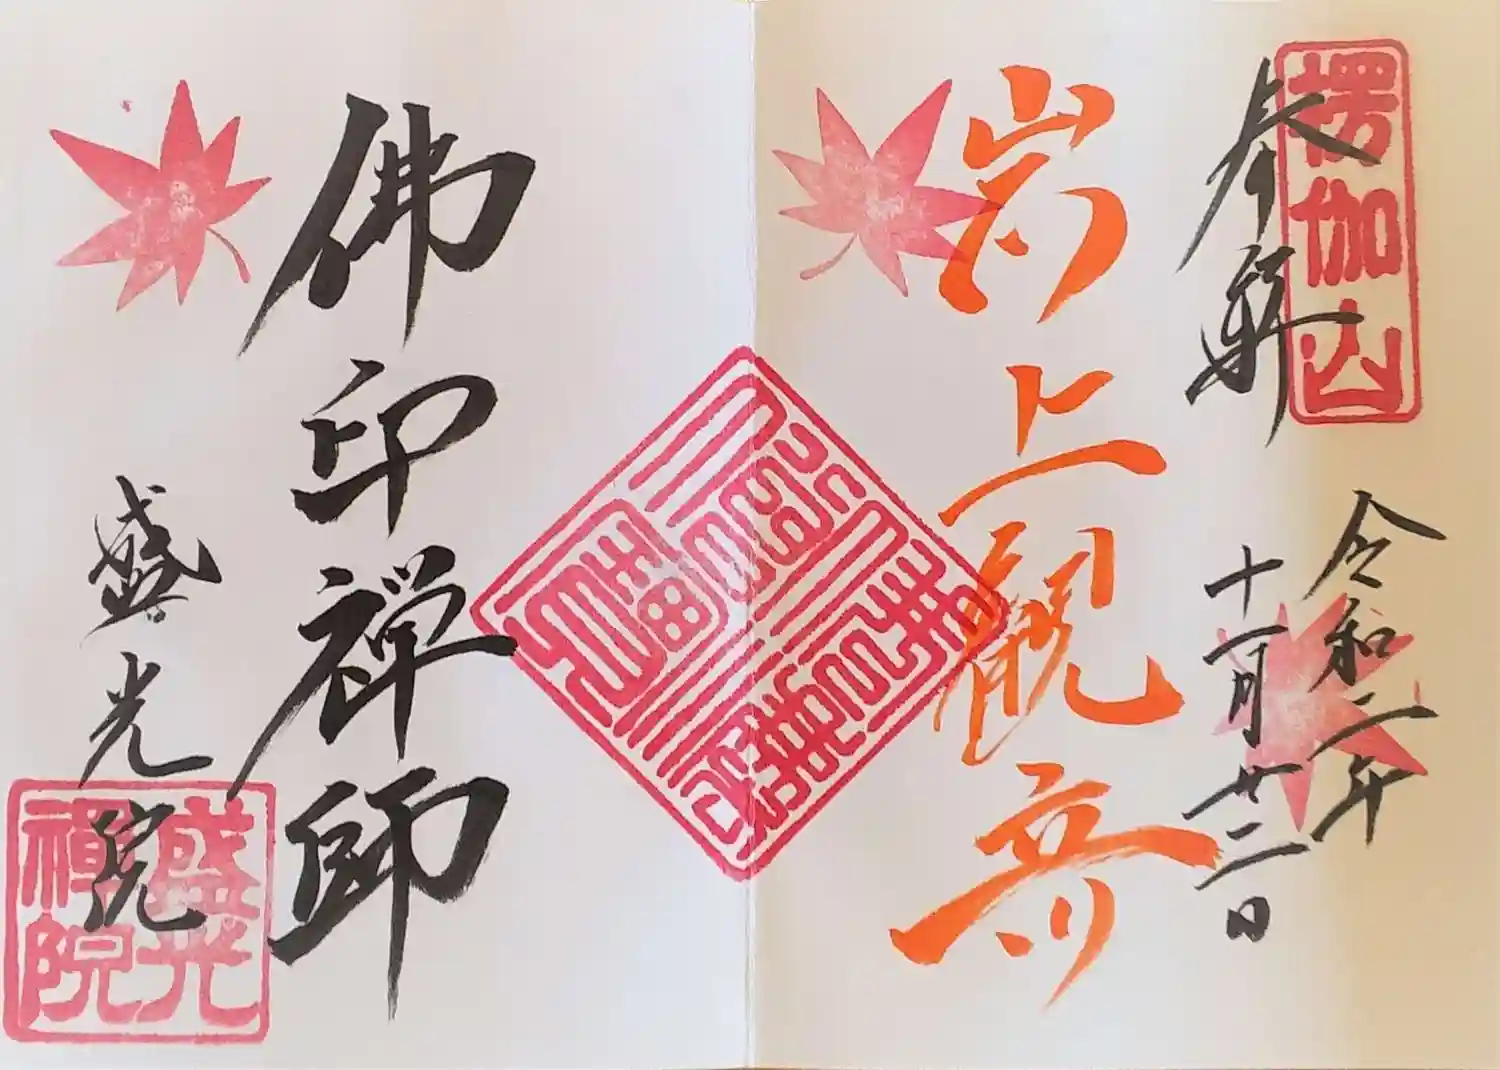 楞伽山
令和二年
十一月廿二日
岩上観音
佛印禅師
盛光院
盛光
禪院